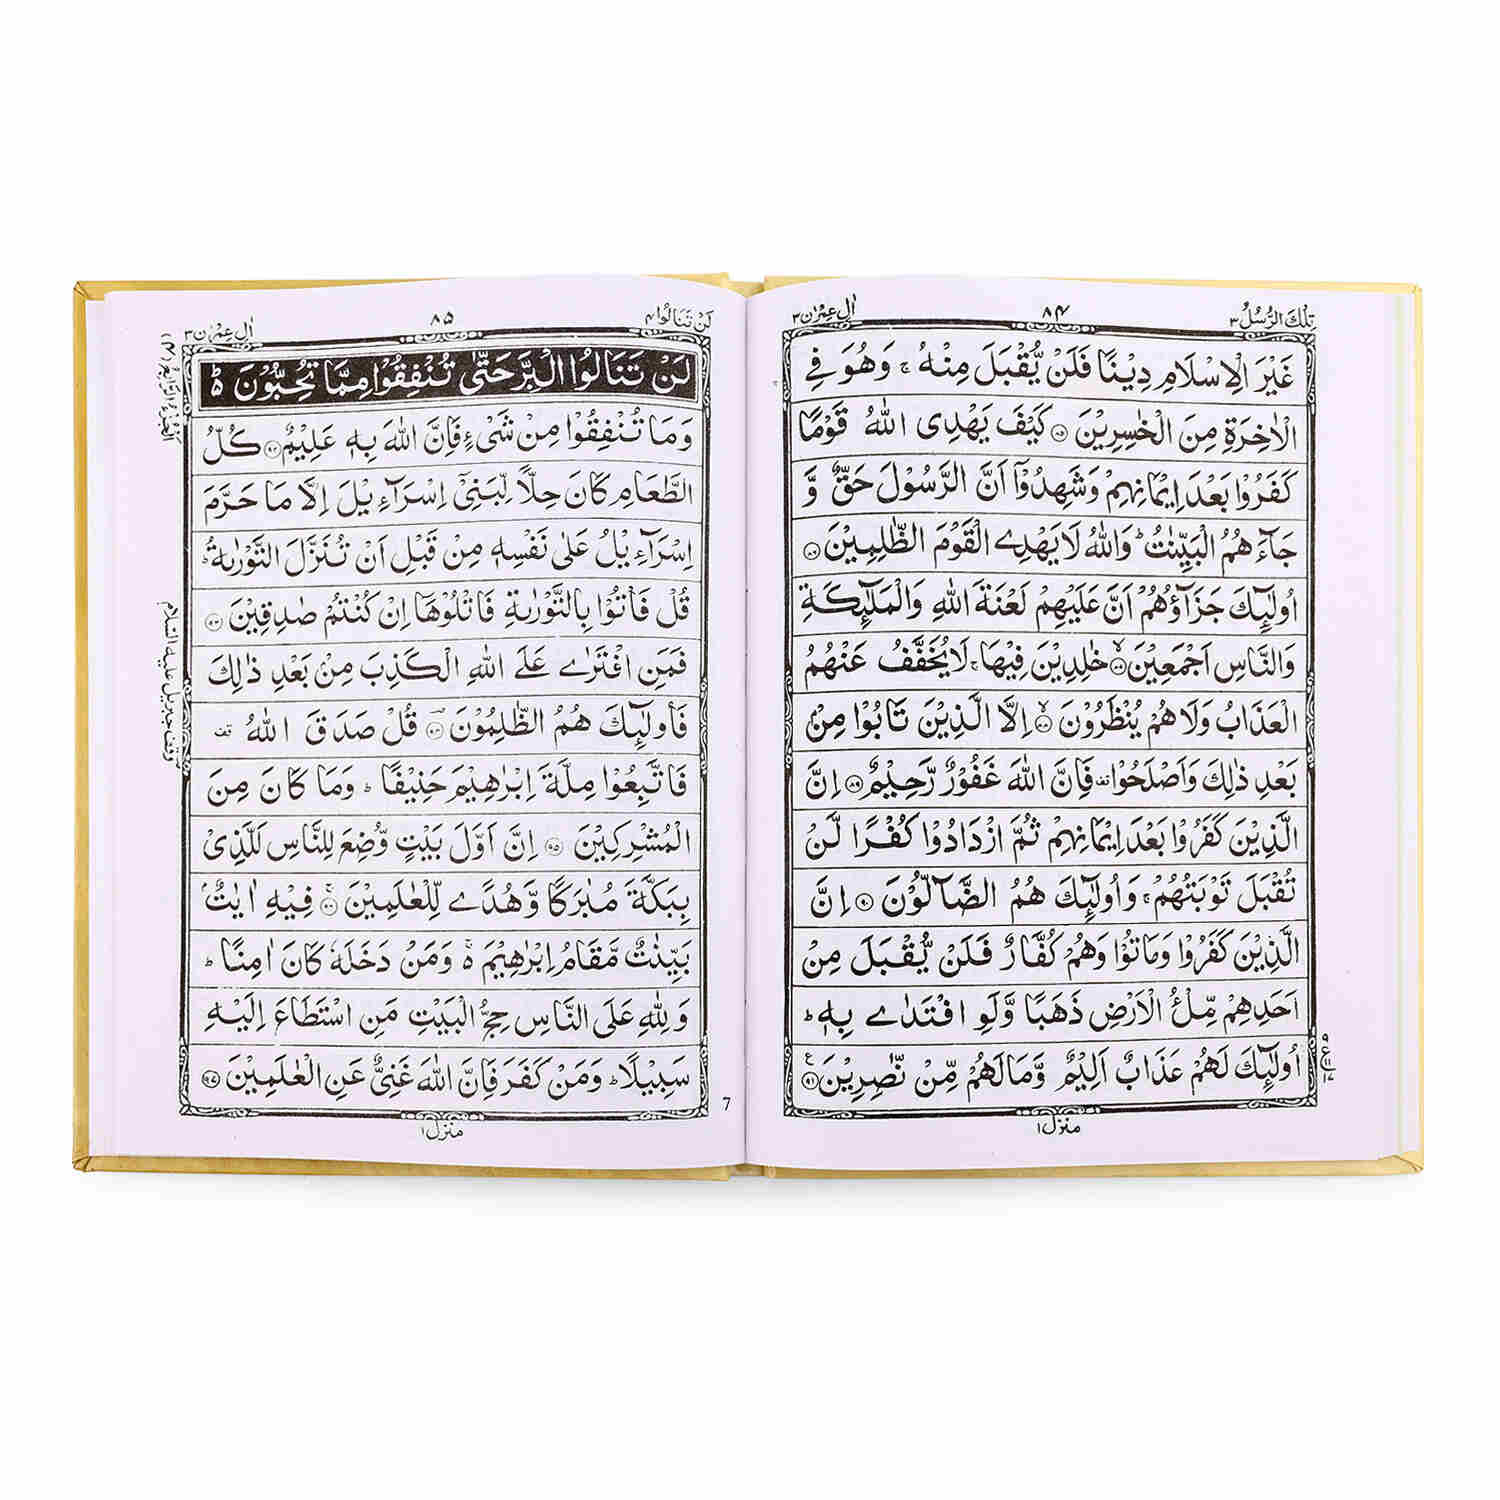 تِلْكَ الرُّسُلُ ٣
٨٤
اٰلِ عِمْرٰن ٣
غَيْرَ الْاِسْلَامِ دِيْنًا فَلَنْ يُّقْبَلَ مِنْهُ ۚ وَهُوَ فِي
الْاٰخِرَةِ مِنَ الْخٰسِرِيْنَ ۝٨٥ كَيْفَ يَهْدِى اللّٰهُ قَوْمًا
كَفَرُوْا بَعْدَ اِيْمَانِهِمْ وَشَهِدُوْٓا اَنَّ الرَّسُوْلَ حَقٌّ وَّ
جَآءَهُمُ الْبَيِّنٰتُ ؕ وَاللّٰهُ لَا يَهْدِى الْقَوْمَ الظّٰلِمِيْنَ ۝٨٦
اُولٰٓئِكَ جَزَآؤُهُمْ اَنَّ عَلَيْهِمْ لَعْنَةَ اللّٰهِ وَالْمَلٰٓئِكَةِ
وَالنَّاسِ اَجْمَعِيْنَ ۝٨٧ۙ خٰلِدِيْنَ فِيْهَا ۚ لَا يُخَفَّفُ عَنْهُمُ
الْعَذَابُ وَلَا هُمْ يُنْظَرُوْنَ ۝٨٨ۙ اِلَّا الَّذِيْنَ تَابُوْا مِنْۢ
بَعْدِ ذٰلِكَ وَاَصْلَحُوْا قف فَاِنَّ اللّٰهَ غَفُوْرٌ رَّحِيْمٌ ۝٨٩ اِنَّ
الَّذِيْنَ كَفَرُوْا بَعْدَ اِيْمَانِهِمْ ثُمَّ ازْدَادُوْا كُفْرًا لَّنْ
تُقْبَلَ تَوْبَتُهُمْ ۚ وَاُولٰٓئِكَ هُمُ الضَّآلُّوْنَ ۝٩٠ اِنَّ
الَّذِيْنَ كَفَرُوْا وَمَاتُوْا وَهُمْ كُفَّارٌ فَلَنْ يُّقْبَلَ مِنْ
اَحَدِهِمْ مِّلْءُ الْاَرْضِ ذَهَبًا وَّلَوِ افْتَدٰى بِهٖ ؕ
اُولٰٓئِكَ لَهُمْ عَذَابٌ اَلِيْمٌ وَّمَا لَهُمْ مِّنْ نّٰصِرِيْنَ ۝٩١ع
منزل ١
لَنْ تَنَالُوا ٤
٨٥
اٰلِ عِمْرٰن ٣
لَنْ تَنَالُوا الْبِرَّ حَتّٰى تُنْفِقُوْا مِمَّا تُحِبُّوْنَ ؕ ٥
وَمَا تُنْفِقُوْا مِنْ شَىْءٍ فَاِنَّ اللّٰهَ بِهٖ عَلِيْمٌ ۝٩٢ كُلُّ
الطَّعَامِ كَانَ حِلًّا لِّبَنِىْٓ اِسْرَآءِيْلَ اِلَّا مَا حَرَّمَ
اِسْرَآءِيْلُ عَلٰى نَفْسِهٖ مِنْ قَبْلِ اَنْ تُنَزَّلَ التَّوْرٰىةُ ؕ
قُلْ فَاْتُوْا بِالتَّوْرٰىةِ فَاتْلُوْهَآ اِنْ كُنْتُمْ صٰدِقِيْنَ ۝٩٣
فَمَنِ افْتَرٰى عَلَى اللّٰهِ الْكَذِبَ مِنْۢ بَعْدِ ذٰلِكَ
فَاُولٰٓئِكَ هُمُ الظّٰلِمُوْنَ ۝٩٤ قُلْ صَدَقَ اللّٰهُ قف
فَاتَّبِعُوْا مِلَّةَ اِبْرٰهِيْمَ حَنِيْفًا ؕ وَمَا كَانَ مِنَ
الْمُشْرِكِيْنَ ۝٩٥ اِنَّ اَوَّلَ بَيْتٍ وُّضِعَ لِلنَّاسِ لَلَّذِىْ
بِبَكَّةَ مُبٰرَكًا وَّهُدًى لِّلْعٰلَمِيْنَ ۝٩٦ۚ فِيْهِ اٰيٰتٌۢ
بَيِّنٰتٌ مَّقَامُ اِبْرٰهِيْمَ ۚ٥ وَمَنْ دَخَلَهٗ كَانَ اٰمِنًا ؕ
وَلِلّٰهِ عَلَى النَّاسِ حِجُّ الْبَيْتِ مَنِ اسْتَطَاعَ اِلَيْهِ
سَبِيْلًا ؕ وَمَنْ كَفَرَ فَاِنَّ اللّٰهَ غَنِىٌّ عَنِ الْعٰلَمِيْنَ ۝٩٧
منزل ١
7
اَلْجُزْءُ الرَّابِعُ (٤)
وقف جبريل عليه السلام